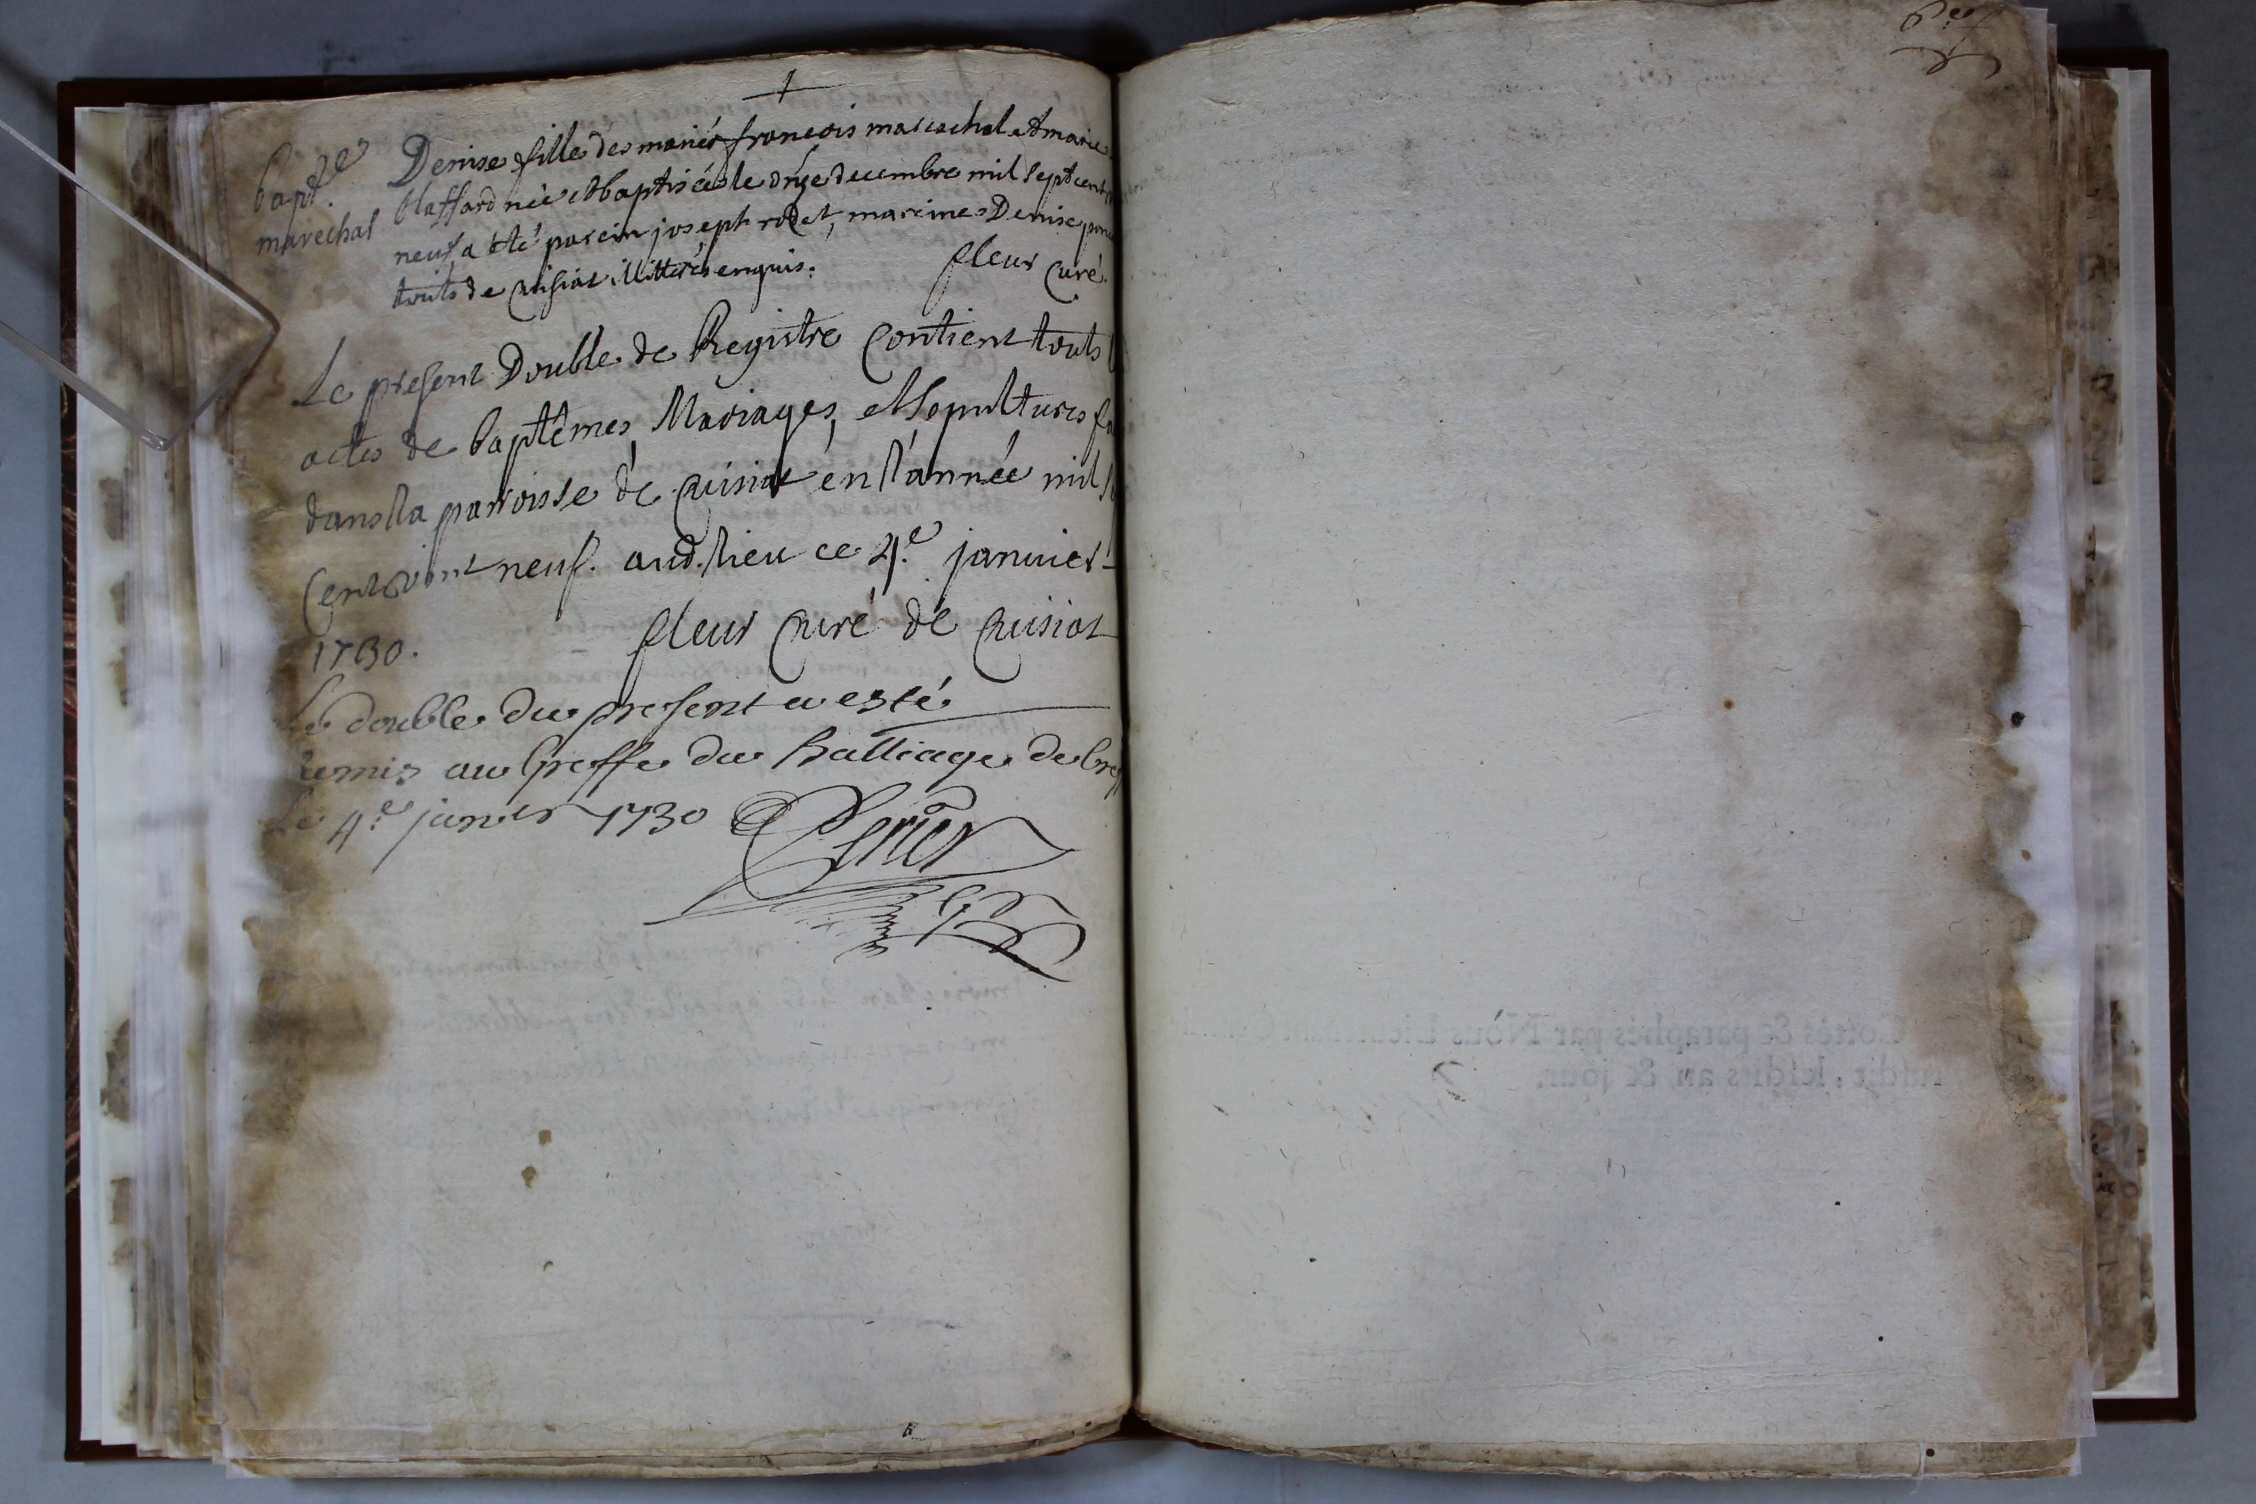 bapt.e
marechal
Denise fille des mariés francois marcachal et marie
blaffard née et baptisée le onze decembre mil sept cent
neuf a été parein joseph rodet, mareine Denise
touts de Cuisiat illitterés enquis. fleur curé.
Le present Double de Registre Contient touts
actes de baptêmes, Mariages, et Sepultures
dans la parroisse de Cuisiat en l'année mil
Cent vint neuf. aud. lieu ce 4.e janvier
1730. fleur Curé de Cuisiat
Le double du present a esté
Remis au Greffe du Balliage de
Le 4.e janvier 1730 Perier
6.e
Cottés & paraphés par Nous Lieutenant
judit, lesdits an & jour.